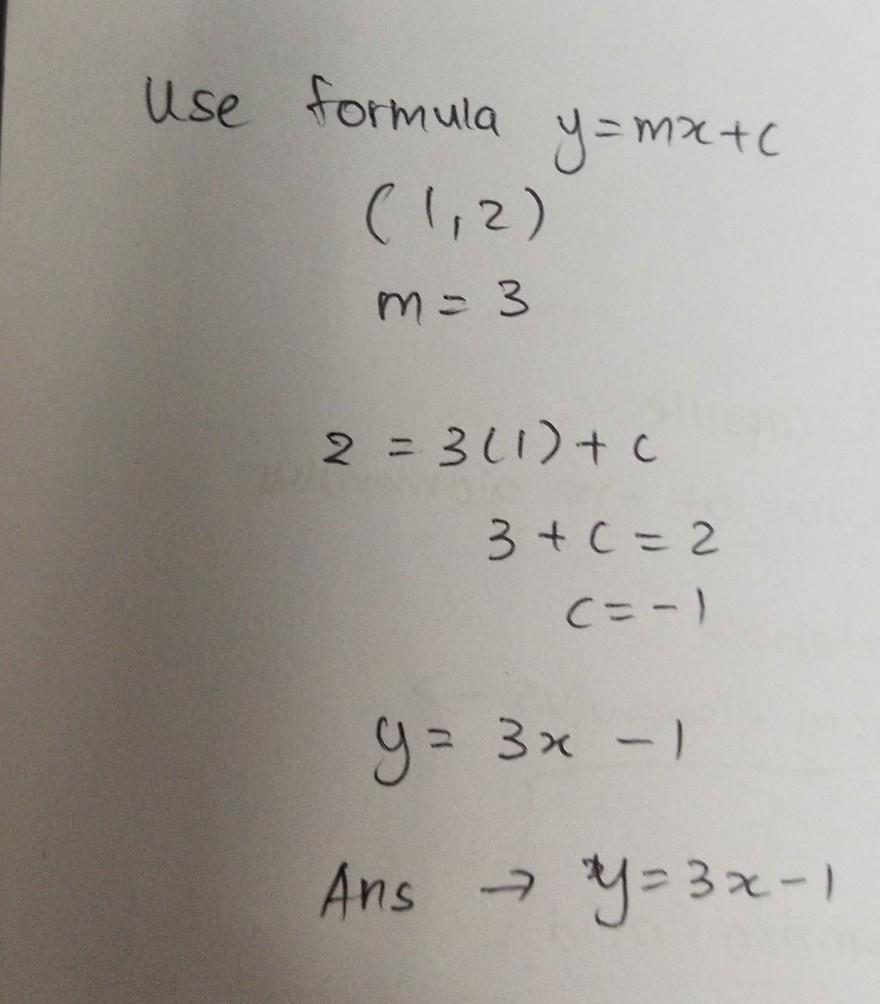 Use formula y=mx+c
(1,2)
m = 3
2 = 3(1)+c
3 + c = 2
c = -1
y = 3x - 1
Ans → y=3x-1